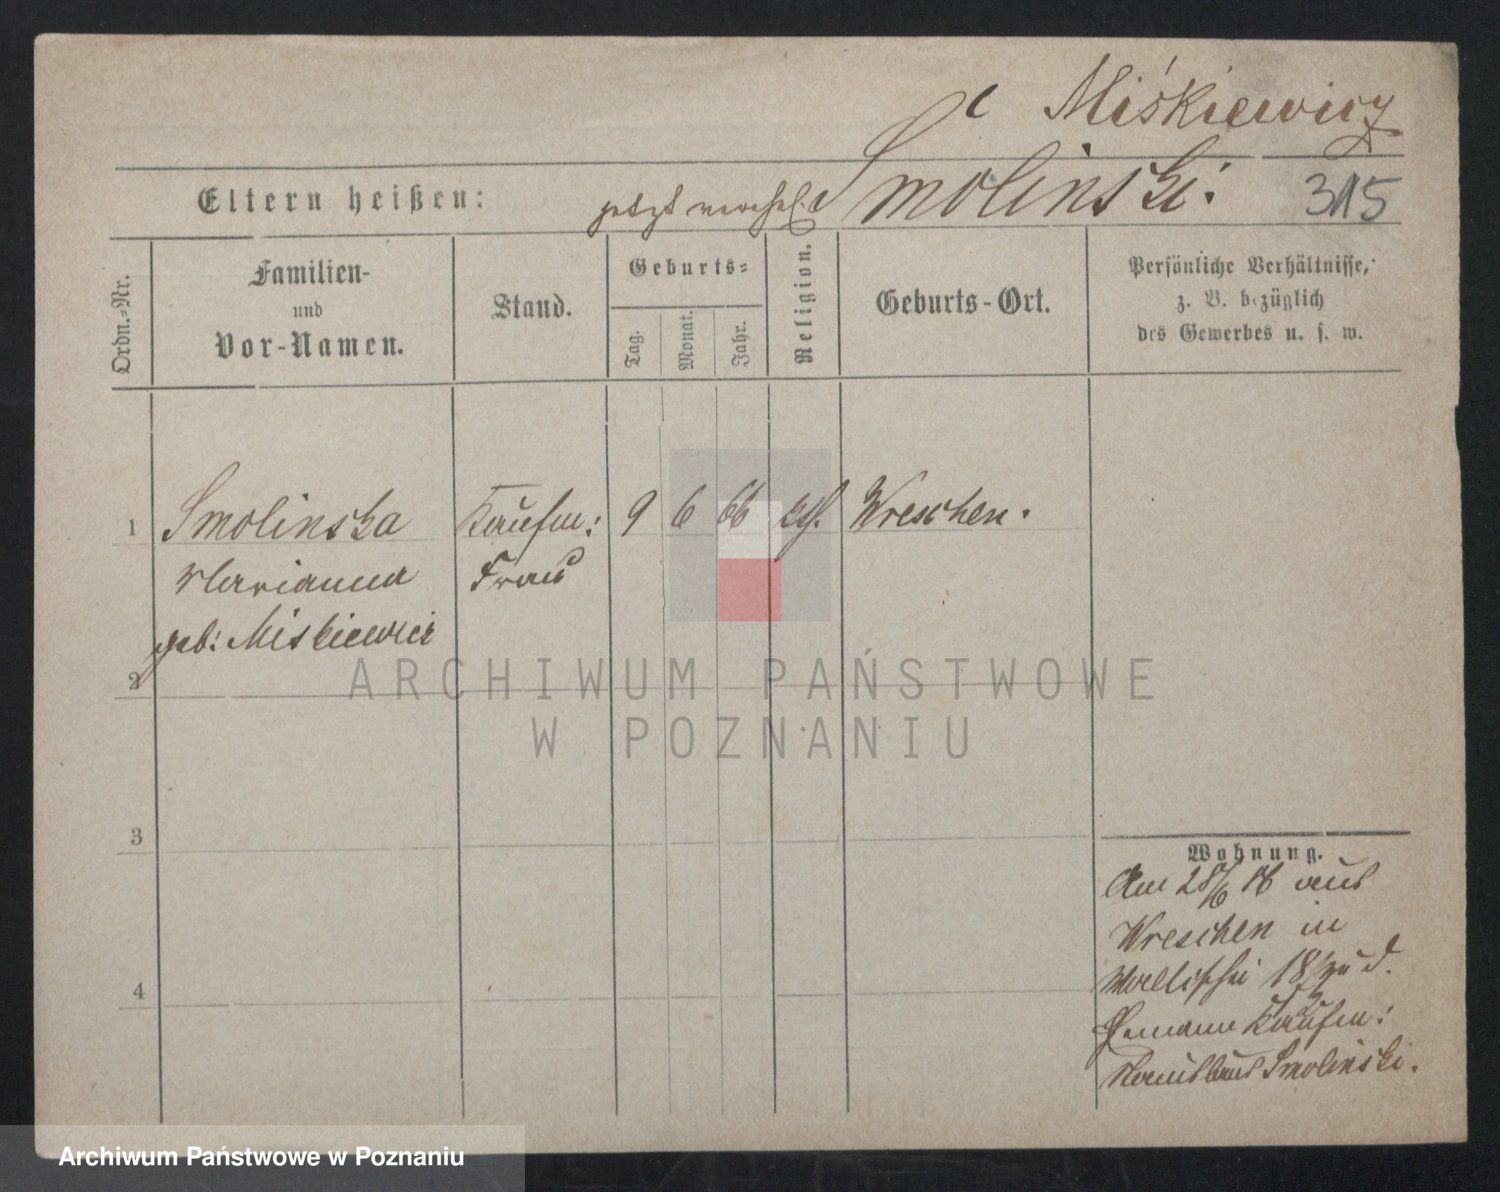 c Miśkiewicz
Eltern heißen:
jetzt verehel. Smolinski.
315
Ordn.-Nr.
Familien-
und
Vor-Namen.
Stand.
Geburts-
Tag.
Monat.
Jahr.
Religion.
Geburts-Ort.
Persönliche Verhältnisse,
z. B. bezüglich
des Gewerbes u. s. w.
1
Smolinska
Marianna
geb: Miskiewicz
Kaufm:
Frau
9
6
66
Wreschen.
2
3
4
Wohnung.
Am 28/6 76 aus
Wreschen in
Wallischei 18 zu d.
Ehemann Kaufm:
Stanislaus Smolinski.
ARCHIWUM PAŃSTWOWE
W POZNANIU
Archiwum Państwowe w Poznaniu